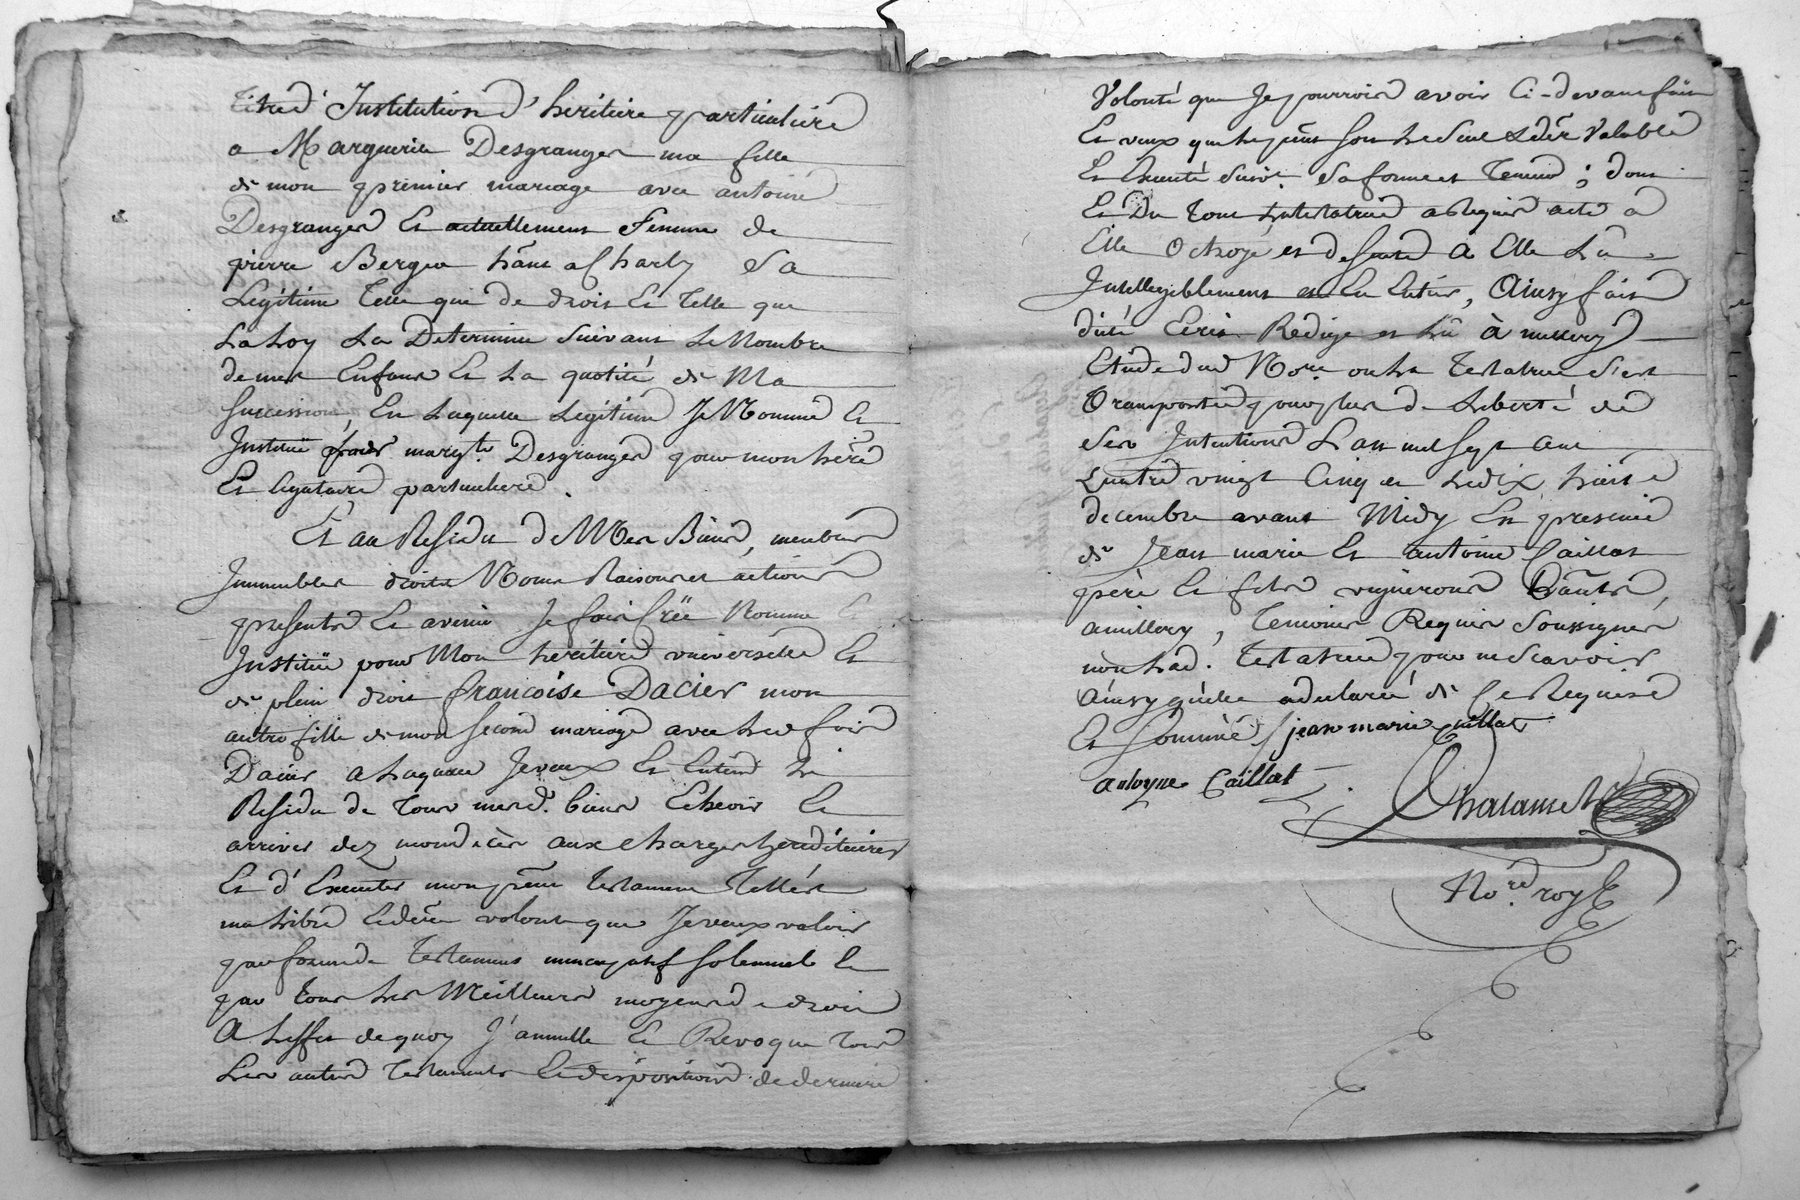 titre d'Institution d'heritiere particuliere
a Marguerite Desgranges ma fille
de mon premier mariage avec antoine
Desgranges Et actuellement Femme de
pierre Berger hãnt a Charly Sa
Legitime Telle que de droit Et Telle que
La Loy La Determine Suivant Le Nombre
de mes Enfans Et La quotité de Ma
Succession, En Laquelle Legitime Je Nomme Et
Institüe margte. Desgranges pour mon hère
Et legataire particuliere.
Et au Residu de Mes Biens, meubles
Immeubles droits Noms Raisons et actions
presents Et avenir Je fais Crée Nomme Et
Institüe pour Mon heritiere universelle Et
de plein droit francoise Dacier mon
autre fille de mon Second mariage avec
Dacier a Laquelle Je veux Et Entend Le
Residu de Tous mesd. biens Echeoir Et
arriver dez mon decès aux Charges hereditaires
Et d'Executer mon pñt Testament Tell'est
ma Libre Et dere volonté que Je veux valoir
par forme de Testament nuncupatif Solemnel Et
par tous Les Meilleurs moyens de droit
A L'effet de quoy J'annulle Et Revoque Tous
Les autres Testaments Et dispositions de derniere
Volonté que Je pourrois avoir Ci-devant fait
Et veux que Le pñt Soit Le Seul Et der Valable
Et Executé Suivt. Sa forme et Teneur; dont
Et Du tout La testatrice a Requis acte a
Elle Octroyé et a Elle Lu
Intelligiblement et En Entier, Ainsy fait
dicté Ecrit Redigé et Lu à millery
Etude dud Nore. ou La Testatrice S'est
Transportée pour plus de Liberté de
Ses Intentions L'an mil Sept cent
quatre vingt Cinq et Le dix huit
decembre avant Midy En presence
de Jean marie Et antoine Caillat
père Et fils vignerons hãnts,
a millery, Temoins Requis Soussignes
non Lad. Testatrice pour ne Scavoir
Ainsy qu'elle a declaré de Ce Requise
Et Sommée / jean marie Caillat
antoyne Caillat
Chalamel
Nore roy